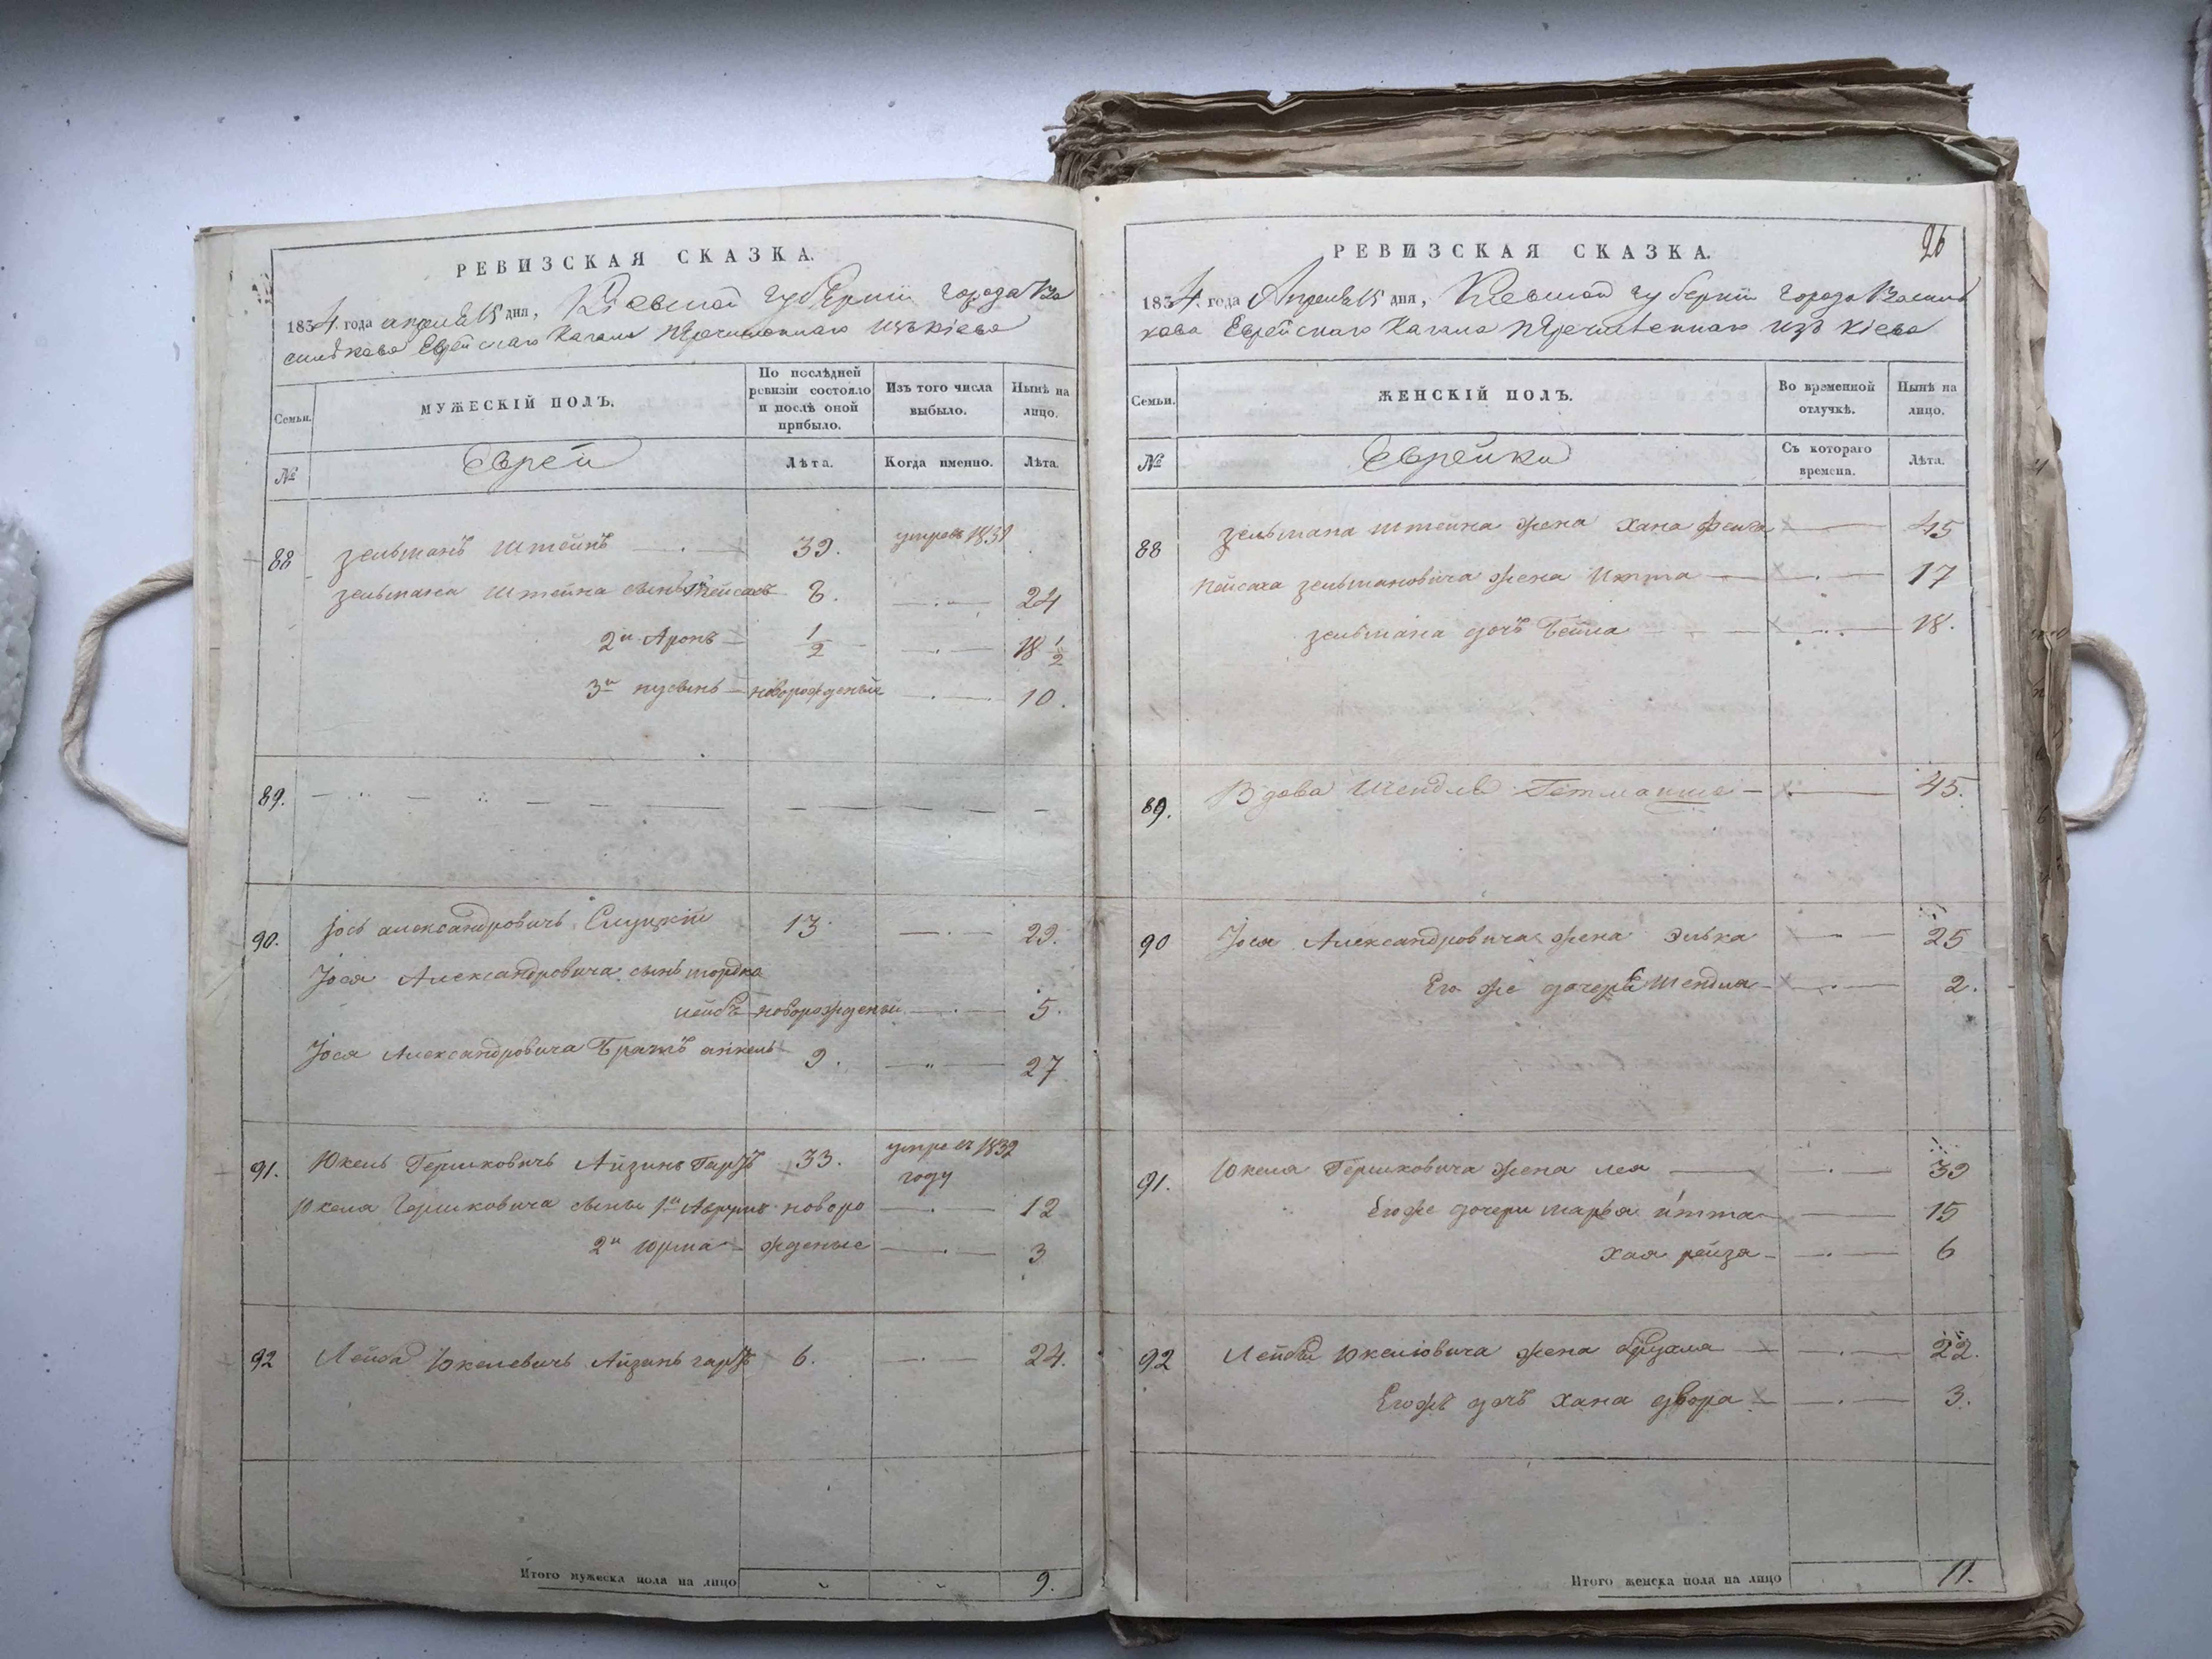 РЕВИЗСКАЯ СКАЗКА.
1834. года апреля 15 дня, Кіевской губерніи города Ва
силькова Еврейскаго Кагала перечисленнаго изъ Кіева
Семьи.
МУЖЕСКІЙ ПОЛЪ.
По послѣдней ревизіи состояло и послѣ оной прибыло.
Изъ того числа выбыло.
Нынѣ на лицо.
№
Еврей
Лѣта.
Когда именно.
Лѣта.
88 Зельманъ Штейнъ 39. умре въ 1831
Зельмана Штейна сынъ Пейсахъ 8. 24
2й Аронъ 1/2 18 1/2
3й новорожденый 10.
89.
90. Іось александровичъ Слуцкій 13. 29.
Іося Александровича сынъ мордко
лейбъ новорожденый 5.
Іося Александровича Братъ 9. 27
91. Юкель Гершковичъ Айзинъ 33. умре въ 1832
году
Юкеля Гершковича сыны 1й Аврумъ новоро 12
2й жденые 3
92 Лейба Юкелевичъ Айзинъ 6. 24.
Итого мужеска пола на лицо 9.
26
РЕВИЗСКАЯ СКАЗКА.
1834. года Апреля 15 дня, Кіевской губерніи города Василь
кова Еврейскаго Кагала перечисленнаго изъ Кіева
Семьи.
ЖЕНСКІЙ ПОЛЪ.
Во временной отлучкѣ.
Нынѣ на лицо.
№
Еврейки
Съ котораго времена.
Лѣта.
88 Зельмана Штейна жена Хана фейга 45
Пейсаха Зельмановича жена Итта 17
Зельмана дочь Бейла 18.
89. Вдова Шендля 45.
90 Іося Александровича жена Элька 25
Его же дочерь Шендля 2.
91. Юкеля Гершковича жена лея 39
Его же дочери марья итта 15
хая рейза 6
92 Лейбы Юкеліовича жена 22.
Его же дочь Хана двора 3.
Итого женска пола на лицо 11.